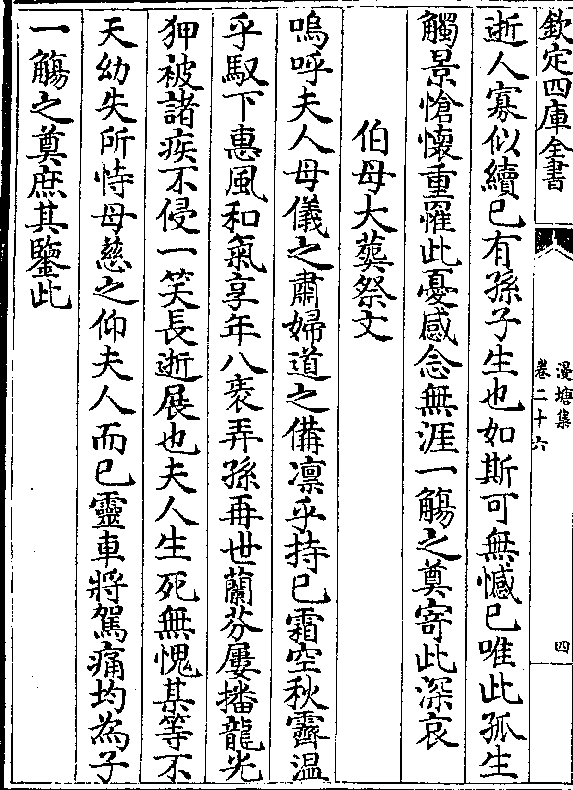 欽定四庫全書
漫塘集
卷二十六
四
逝人寡似續已有孫子生也如斯可無憾已唯此孤生
觸景愴懷重罹此憂感念無涯一觴之奠寄此深哀
伯母大葬祭文
嗚呼夫人母儀之肅婦道之備凛乎持已霜空秋霽温
乎馭下惠風和氣享年八袠弄孫再世蘭芬屢播龍光
狎被諸疾不侵一笑長逝展也夫人生死無愧某等不
天幼失所恃母慈之仰夫人而已靈車將駕痛均為子
一觴之奠庶其鑒此